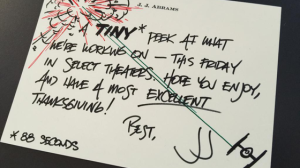 J. J. ABRAMS
A TINY* PEEK AT WHAT
WE'RE WORKING ON — THIS FRIDAY
IN SELECT THEATERS. HOPE YOU ENJOY,
AND HAVE A MOST EXCELLENT
THANKSGIVING!
BEST,
JJ
*88 SECONDS